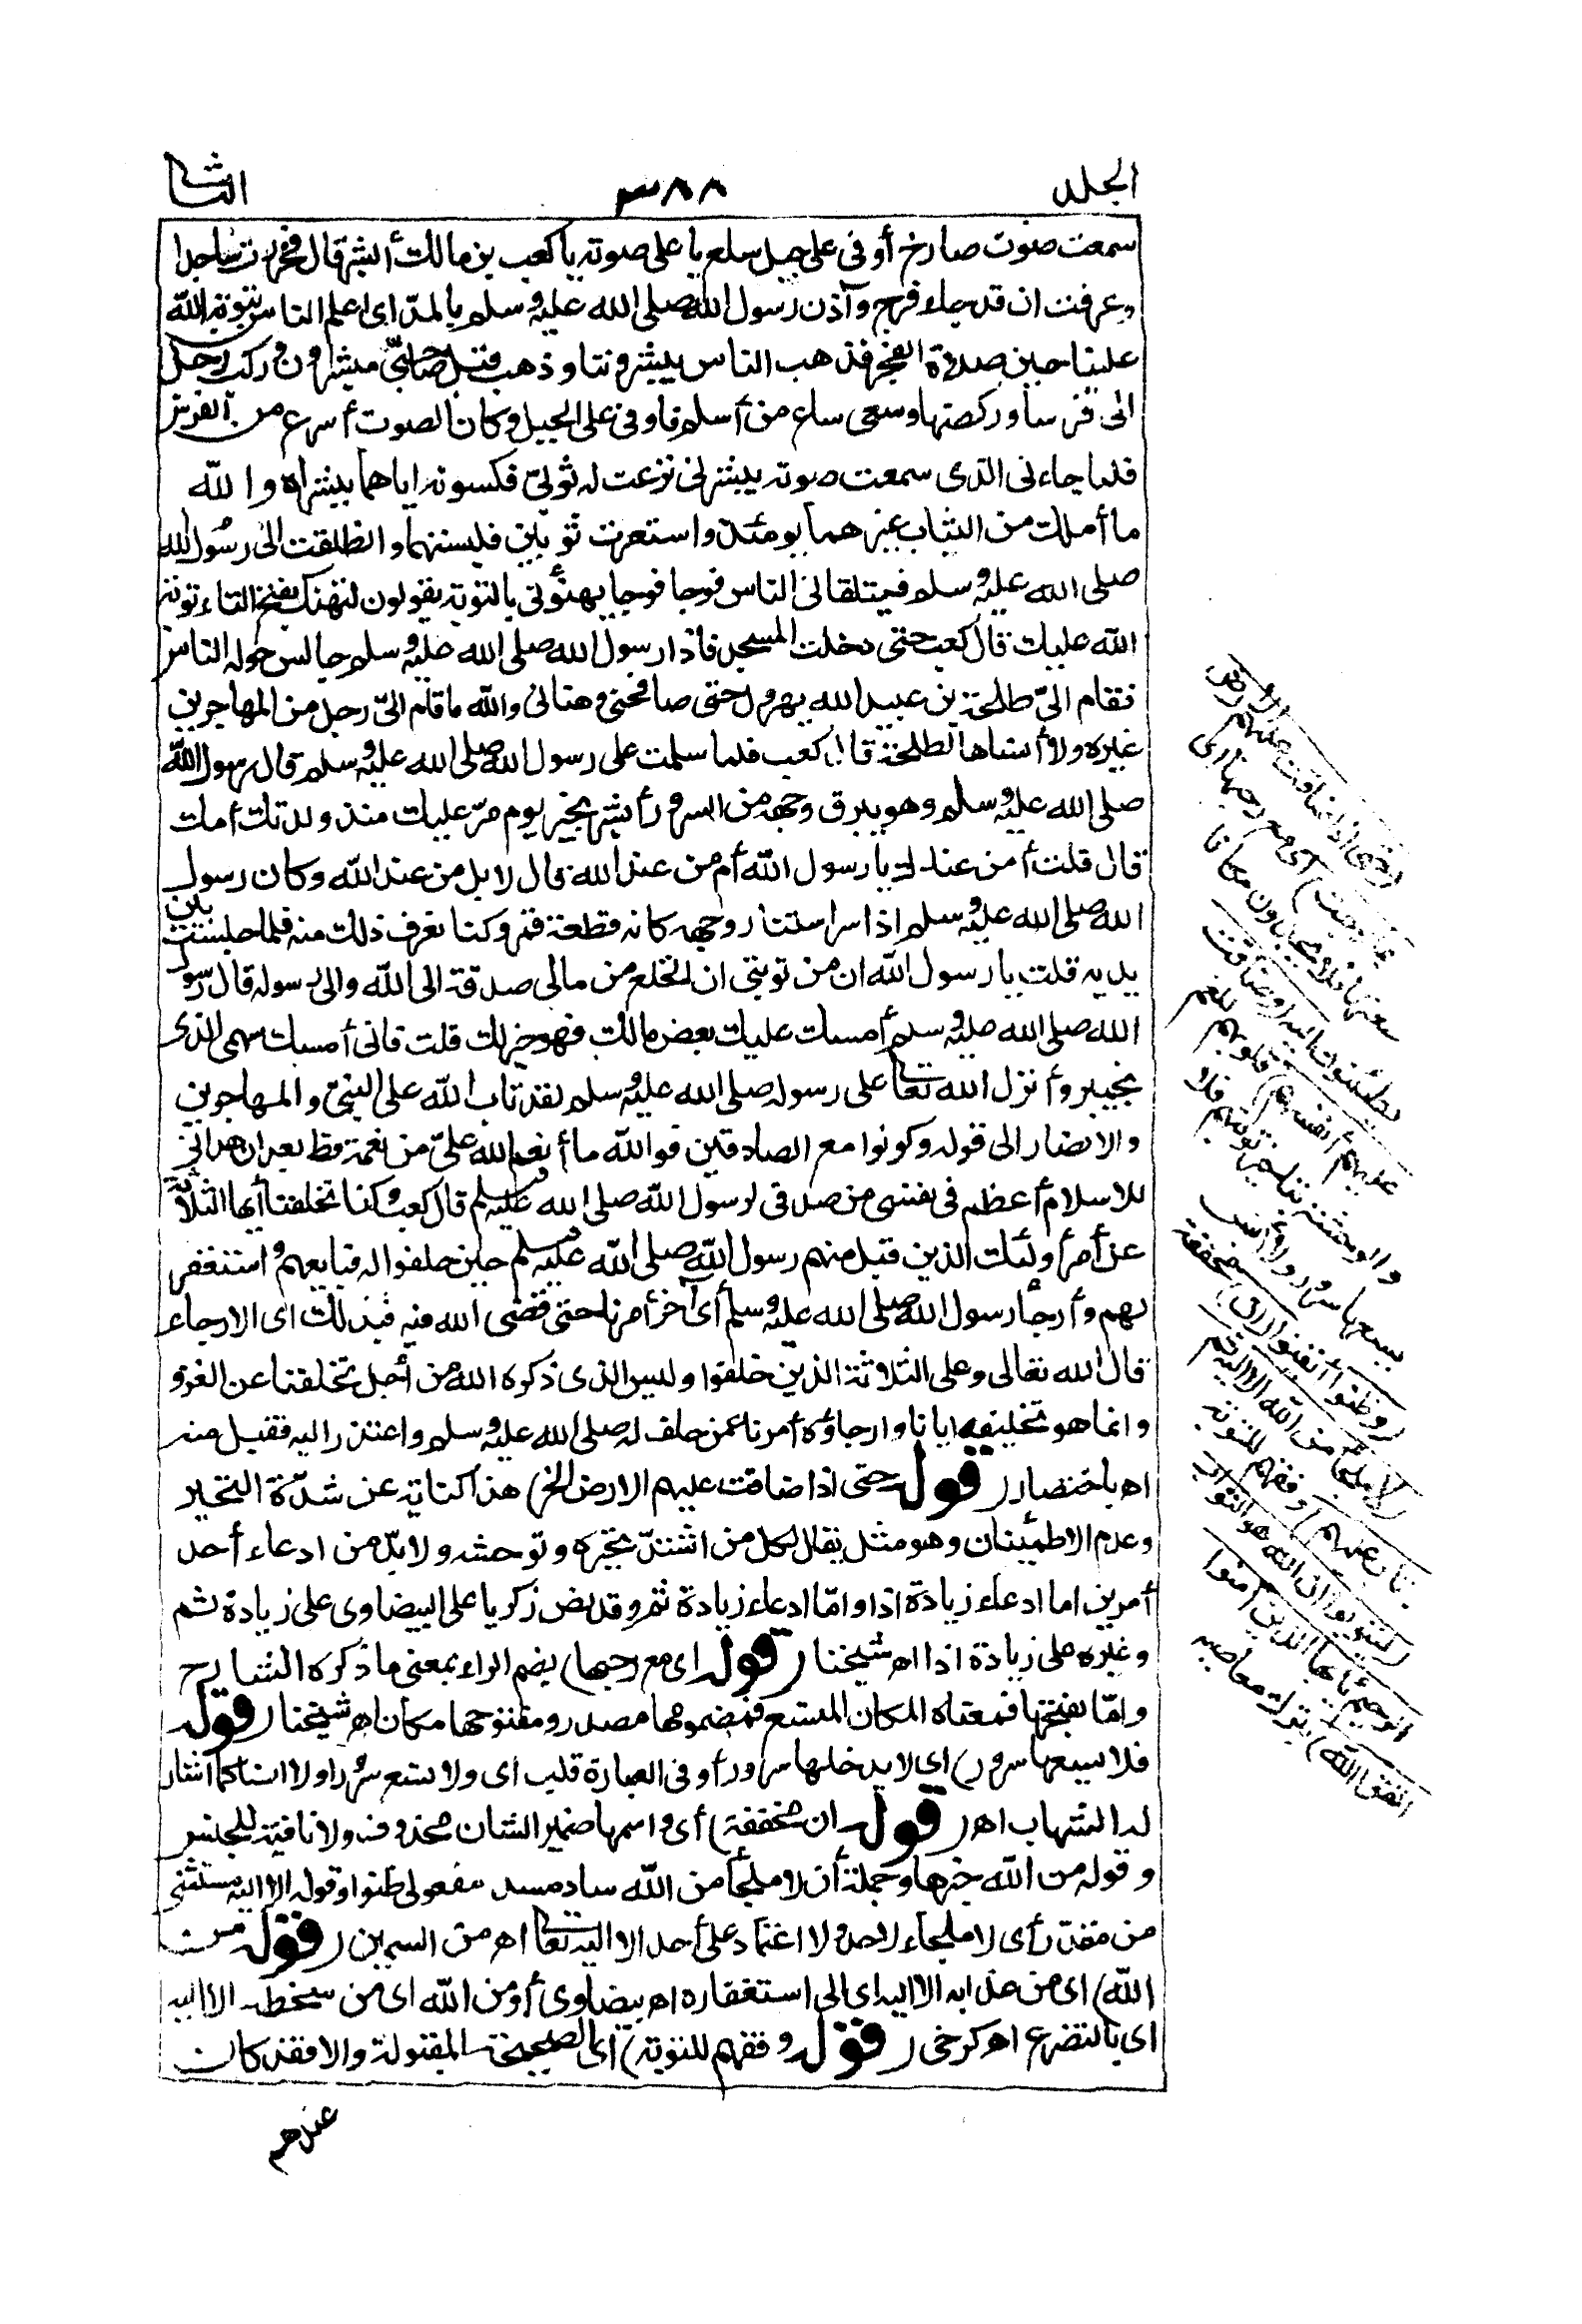 الجلد ٣٨٨ الثانى
سمعت صوت صارخ أوفى على جبل سلع يا على صوته يا كعب بن مالك أبشر قال فخررت ساجدا
وعرفت ان قد جاء فرج وآذن رسول الله صلى الله عليه وسلم بالمد اى اعلم الناس بتوبة الله
علينا حين صلاة الفجر فذهب الناس يبشروننا وذهب قبل صاحبيّ مبشرون وركب رجل
الىّ فرسا وركضها وسعى ساع من أسلم فاوفى على الجبل وكان الصوت أسرع من الفرس
فلما جاءنى الذى سمعت صوته يبشرنى نزعت له ثوبيّ فكسوته اياهما ببشراه والله
ما أملك من الثياب غيرهما يومئذ واستعرت ثوبين فلبستهما وانطلقت الى رسول الله
صلى الله عليه وسلم فيتلقانى الناس فوجا فوجا يهنؤنى بالتوبة يقولون لتهنك بفتح التاء توبة
الله عليك قال كعب حتى دخلت المسجد فاذا رسول الله صلى الله عليه وسلم جالس حوله الناس
فقام الىّ طلحة بن عبيد الله يهرول حتى صافحنى وهنانى والله ما قام الىّ رجل من المهاجرين
غيره ولا أنساها لطلحة قال كعب فلما سلمت على رسول الله صلى الله عليه وسلم قال رسول الله
صلى الله عليه وسلم وهو يبرق وجهه من السرور أبشر بخير يوم مرّ عليك منذ ولدتك أمك
قال قلت أمن عندك يا رسول الله أم من عند الله قال لا بل من عند الله وكان رسول
الله صلى الله عليه وسلم اذا سر استنار وجهه كانه قطعة قمر وكنا نعرف ذلك منه فلما جلست بين
يديه قلت يا رسول الله ان من توبتى ان انخلع من مالى صدقة الى الله والى رسوله قال رسول
الله صلى الله عليه وسلم أمسك عليك بعض مالك فهو خير لك قلت فانى أمسك سهمى الذى
بخيبر وأنزل الله تعالى على رسوله صلى الله عليه وسلم لقد تاب الله على النبىّ والمهاجرين
والانصار الى قوله وكونوا مع الصادقين فوالله ما أنعم الله علىّ من نعمة قط بعد ان هدانى
للاسلام أعظم فى نفسى من صدقى لرسول الله صلى الله عليه وسلم قال كعب وكنا تخلفنا أيها الثلاثة
عن أمر أولئك الذين قبل منهم رسول الله صلى الله عليه وسلم حين حلفوا له فبايعهم واستغفر
لهم وأرجأ رسول الله صلى الله عليه وسلم أى أخر أمرنا حتى قضى الله فيه فبذلك اى الارجاء
قال الله تعالى وعلى الثلاثة الذين خلفوا وليس الذى ذكره الله من أجل تخلفنا عن الغزو
وانما هو تخليفه ايانا وارجاؤه أمرنا عمن حلف له صلى الله عليه وسلم واعتذر اليه فقبل منه
اه باختصار (قوله حتى اذا ضاقت عليهم الارض الخ) هذا كناية عن شدّة التحير
وعدم الاطمئنان وهو مثل يقال لكل من اشتدّ تحيره وتوحشه ولا بدّ من ادعاء أحد
أمرين اما ادعاء زيادة اذا واما ادعاء زيادة ثم وقد نص زكريا على البيضاوى على زيادة ثم
وغيره على زيادة اذا اه شيخنا (قوله اى مع رحبها) بضم الراء بمعنى ما ذكره الشارح
وامّا بفتحها فمعناه المكان المتسع فمضمومها مصدر ومفتوحها مكان اه شيخنا (قوله
فلا يسعها سرور) اى لا يدخلها سرور أو فى العبارة قلب اى ولا تسع سرورا ولا انسا كما اشار
له الشهاب اه (قوله ان مخففة) أى واسمها ضمير الشان محذوف ولا نافية للجنس
وقوله من الله خبرها وجملة أن لا ملجأ من الله ساد مسد مفعولى ظنوا وقوله الا اليه مستثنى
من مقدر أى لا ملجاء لاحد ولا اعتماد على أحد الا اليه تعالى اه من السمين (قوله من
الله) اى من عذابه الا اليه اى الى استغفاره اه بيضاوى أو من الله اى من سخطه الا اليه
اى بالتضرع اه كرخى (قوله وفقهم للتوبة) اى الصحيحة المقبولة والا فقد كان
عندهم
(حتى اذا ضاقت عليهم الارض
بما رحبت) أى مع رحبها اى
سعتها فلا يجدون مكانا
يطمئنون اليه (وضاقت
عليهم أنفسهم) قلوبهم للغم
والوحشة بتاخير توبتهم فلا
يسعها سرور ولا أنس
(وظنوا) أيقنوا (ان) مخففة
(لا ملجأ من الله الا اليه ثم
تاب عليهم) وفقهم للتوبة
(ليتوبوا ان الله هو التواب
الرحيم يا أيها الذين آمنوا
اتقوا الله) بترك معاصيه